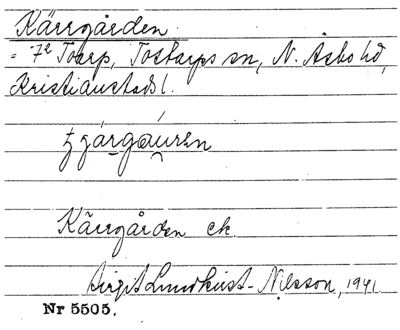 Kärrgården
= 7² Toarp, Tostarps sn, N. Åsbo hd,
Kristianstads l.
Kärrgården ek.
Birgit Lundkvist-Nilsson, 1941.
Nr 5505.